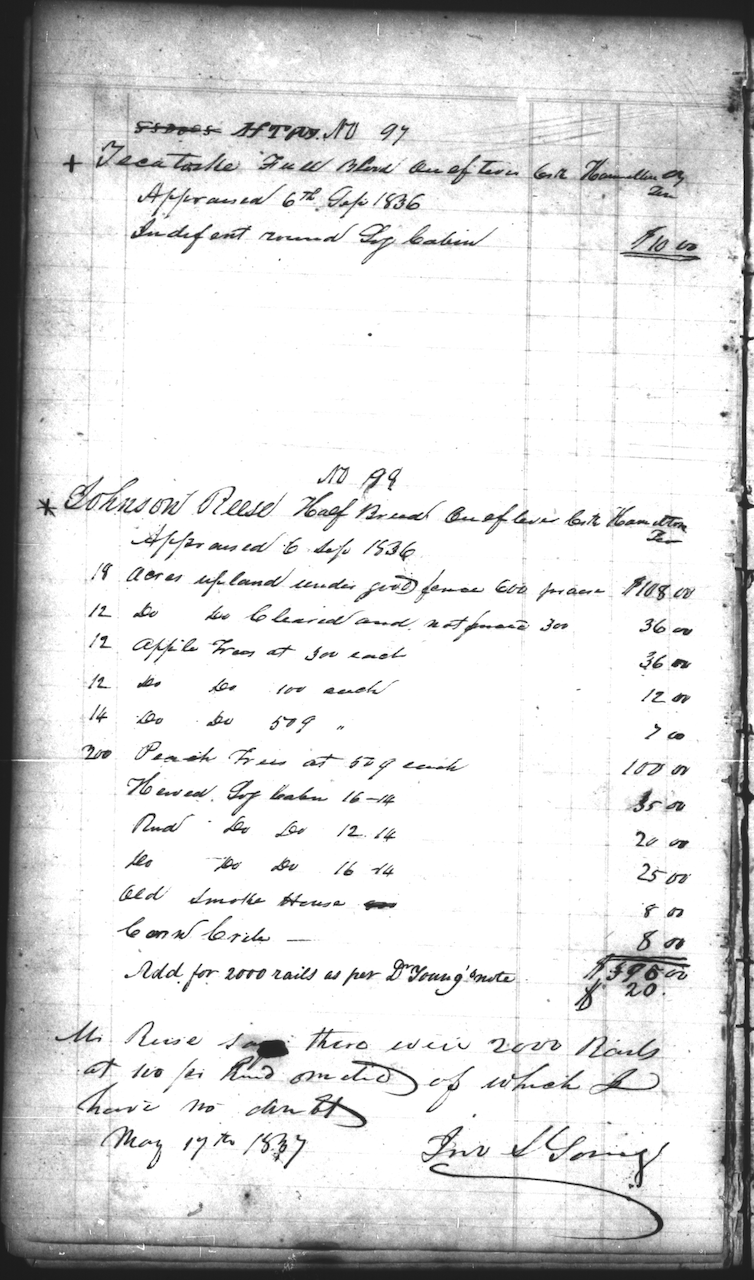 No 97
Full Blood Hamilton Cy
Ten
Appraised 6th Sep 1836
Indifent round Log Cabin $10 00
No 98
Johnson Reese Half Breed Hamilton
Ten
Appraised 6 Sep 1836
18 Acres upland under good fence 600 pr acre $108 00
12 Do Do Cleared and not fenced 300 36 00
12 Apple Trees at 300 each 36 00
12 Do Do 100 each 12 00
14 Do Do 50¢ " 7 00
200 Peach Trees at 50¢ each 100 00
Hewed Log Cabin 16-14 35 00
Rnd Do Do 12 14 20 00
Do Do Do 16-14 25 00
Old Smoke House 8 00
Corn Crib — 8 00
$395 00
Add for 2000 rails as per Dr Young's note $ 20.
Mr Reese says there were 2000 Rails
at 100 per Hund omited of which I
have no doubt
May 17th 1837 Jno S Young